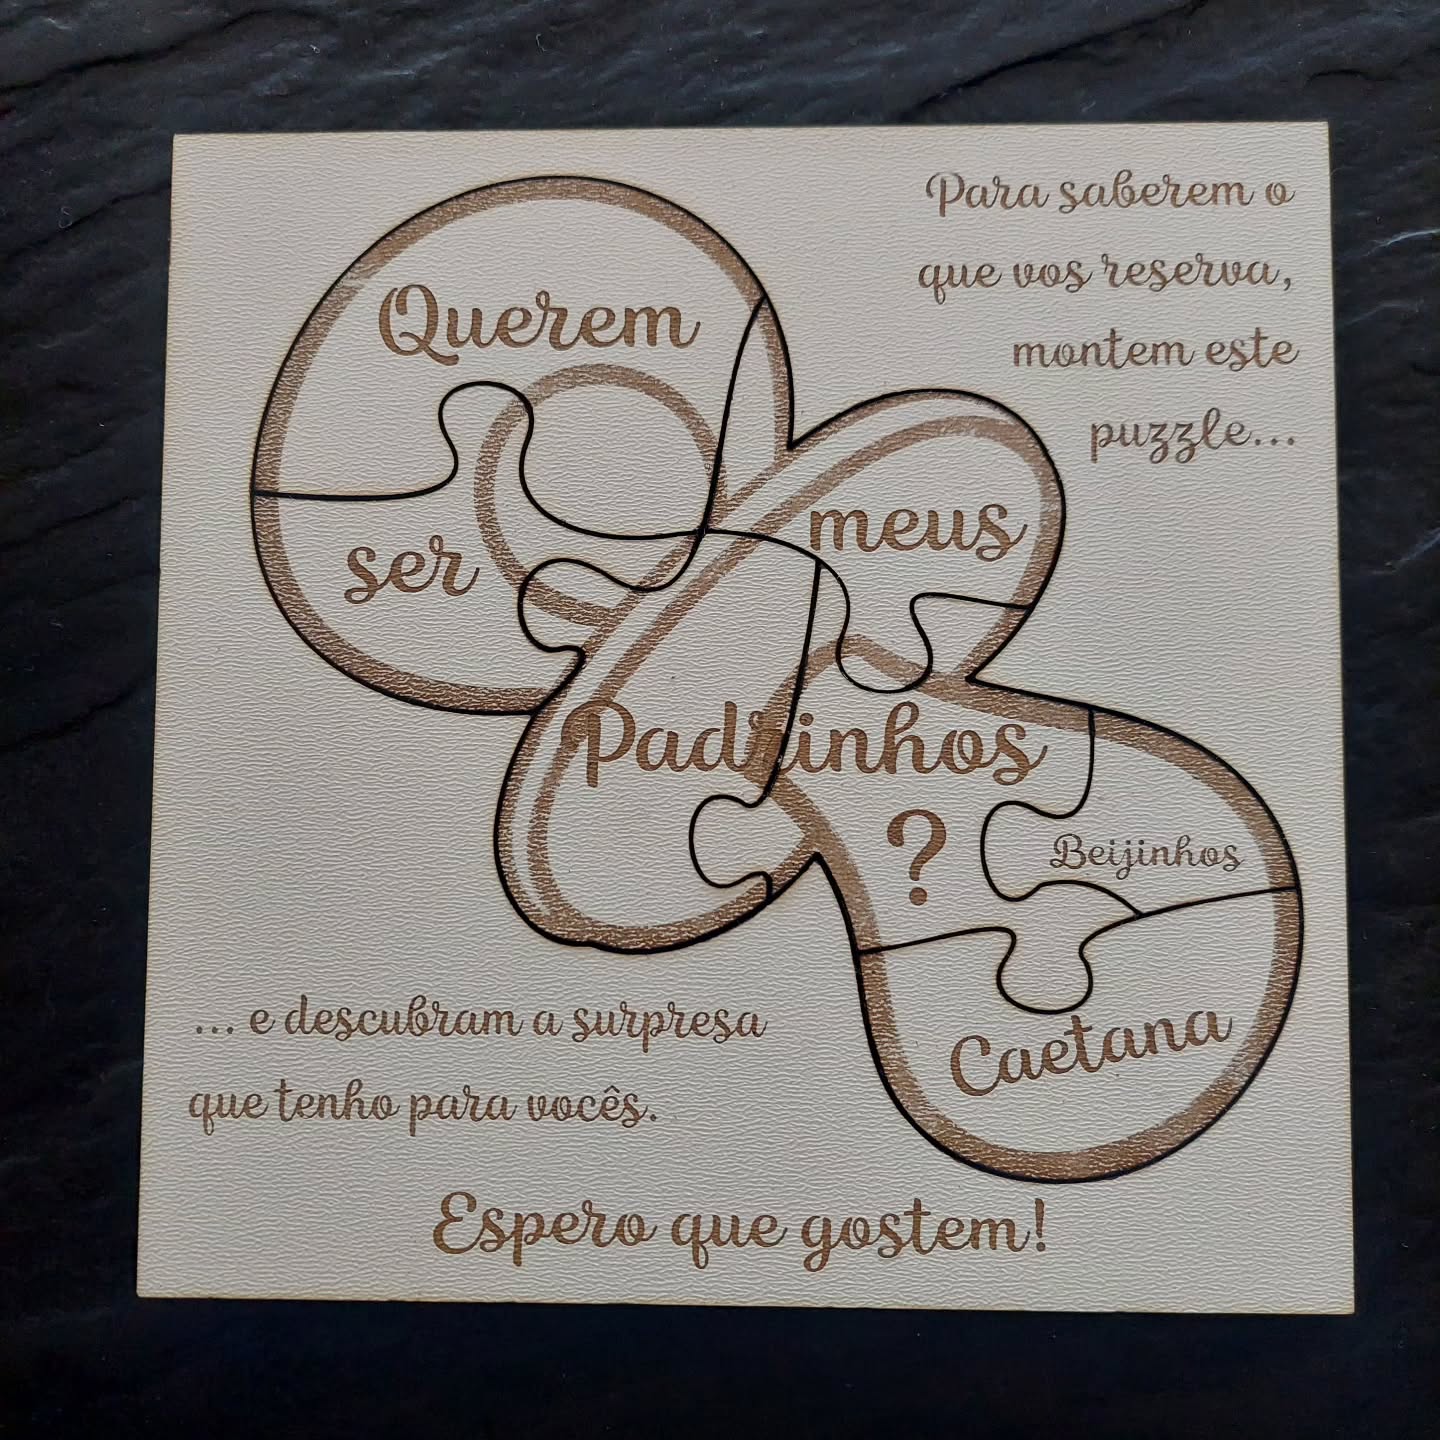 Para saberem o
que vos reserva,
montem este
puzzle...
Querem
ser
meus
Padrinhos
?
Beijinhos
Caetana
... e descubram a surpresa
que tenho para vocês.
Espero que gostem!